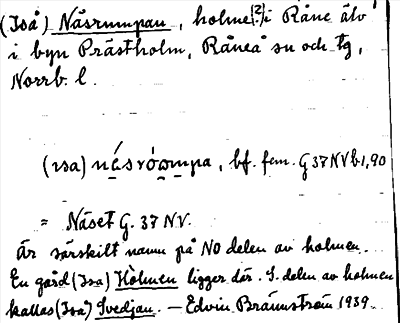 (Iså) Näsrumpan, holme[?] i Råne älv
i byn Prästholm, Råneå sn och tg,
Norrb. l.
(ɩsa) nésrómpa, bf. fem. G 37 NV b. 1,90
= Näset G. 37 NV.
är särskilt namn på NO delen av holmen.
En gård (Isa) Holmen ligger där. S. delen av holmen
kallas (Isa) Svedjan. — Edvin Brännström 1939.